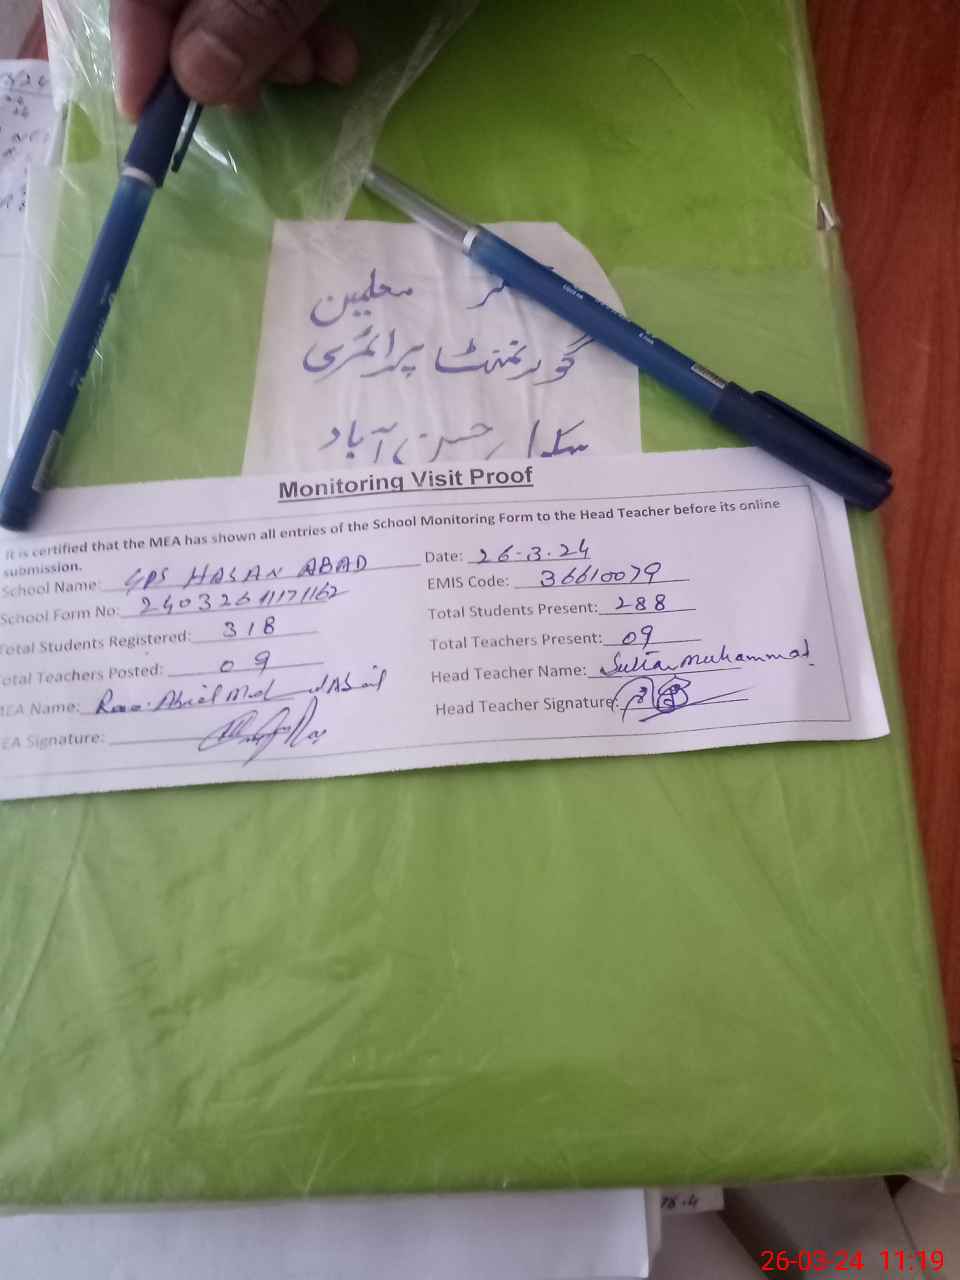 معلمین
گورنمنٹ پرائمری
سکول حسن آباد
Monitoring Visit Proof
It is certified that the MEA has shown all entries of the School Monitoring Form to the Head Teacher before its online
submission.
School Name: GPS HASAN ABAD Date: 26-3-24
School Form No: EMIS Code: 36610079
Total Students Registered: 318 Total Students Present: 288
Total Teachers Posted: 09 Total Teachers Present: 09
MEA Name: Head Teacher Name: Sultan Muhammad
EA Signature: Head Teacher Signature:
26-03-24 11:19